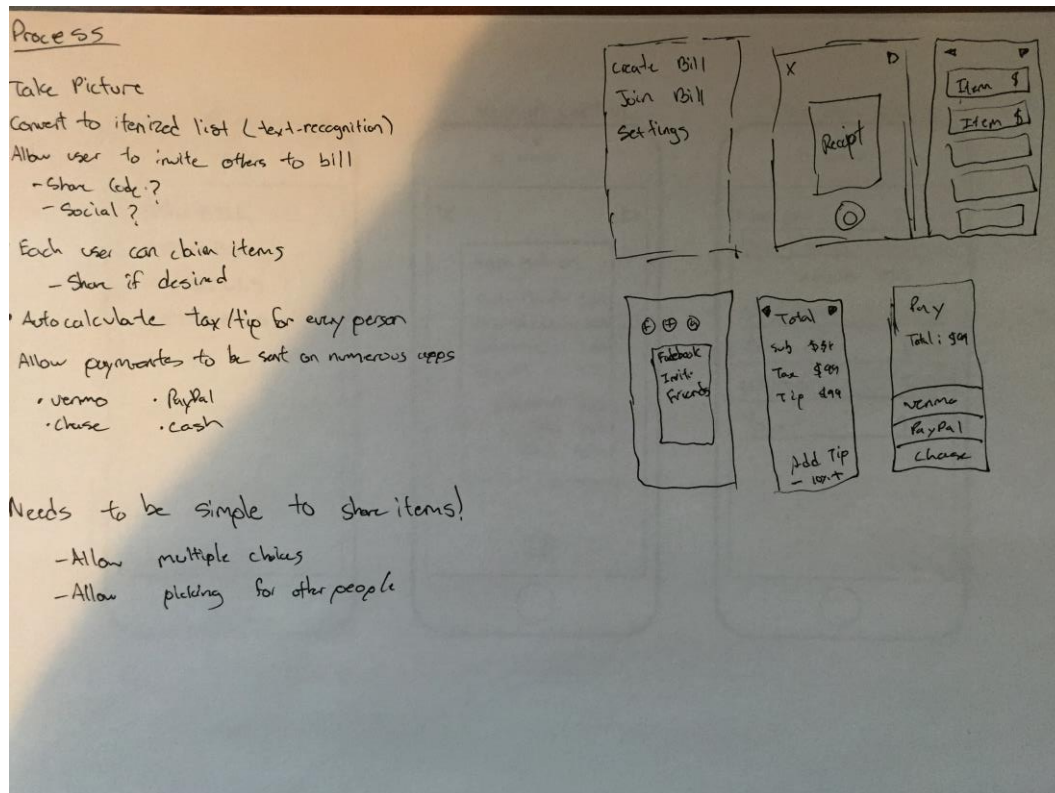 Process
Take Picture
Convert to itemized list (text-recognition)
Allow user to invite others to bill
- Share Code?
- Social?
Each user can claim items
- Share if desired
• Autocalculate tax/tip for every person
Allow paymentes to be sent on numerous apps
• venmo • PayPal
• Chase • cash
Needs to be simple to share items!
- Allow multiple choices
- Allow picking for other people
Create Bill
Join Bill
Settings
X
Receipt
Item $
Item $
Facebook
Invite
Friends
Total
Sub
Tax $99
Tip $99
Add Tip
Pay
Total: $99
venmo
PayPal
Chase